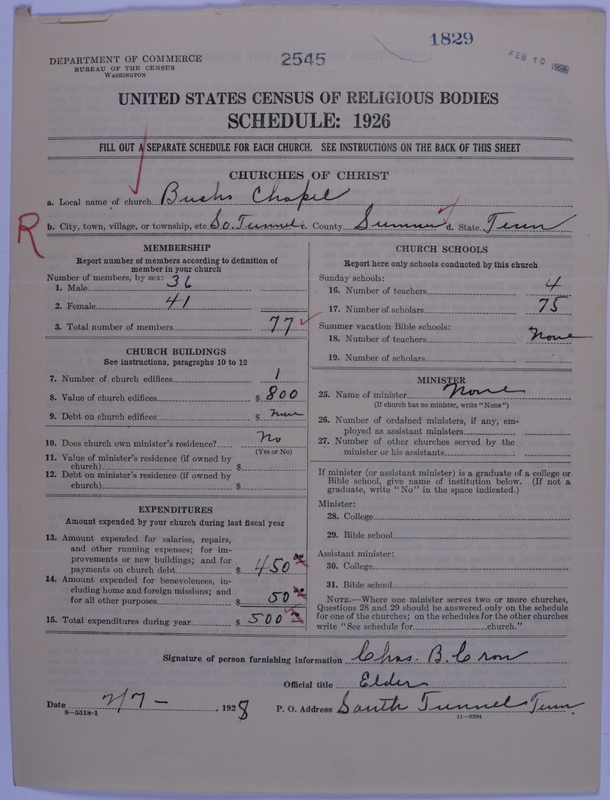 1829
2545
FEB 10 1928
DEPARTMENT OF COMMERCE
BUREAU OF THE CENSUS
WASHINGTON
UNITED STATES CENSUS OF RELIGIOUS BODIES
SCHEDULE: 1926
FILL OUT A SEPARATE SCHEDULE FOR EACH CHURCH. SEE INSTRUCTIONS ON THE BACK OF THIS SHEET
CHURCHES OF CHRIST
a. Local name of church Bushs Chapel
R
b. City, town, village, or township, etc. So. Tunnel c. County Sumner d. State Tenn
MEMBERSHIP
Report number of members according to definition of
member in your church
Number of members, by sex:
1. Male 36
2. Female 41
3. Total number of members 77
CHURCH BUILDINGS
See instructions, paragraphs 10 to 12
7. Number of church edifices 1
8. Value of church edifices $ 800
9. Debt on church edifices $ none
10. Does church own minister's residence? No
(Yes or No)
11. Value of minister's residence (if owned by
church) $
12. Debt on minister's residence (if owned by
church) $
EXPENDITURES
Amount expended by your church during last fiscal year
13. Amount expended for salaries, repairs,
and other running expenses; for im-
provements or new buildings; and for
payments on church debt $ 450 00
14. Amount expended for benevolences, in-
cluding home and foreign missions; and
for all other purposes $ 50 00
15. Total expenditures during year $ 500 00
CHURCH SCHOOLS
Report here only schools conducted by this church
Sunday schools:
16. Number of teachers 4
17. Number of scholars 75
Summer vacation Bible schools:
18. Number of teachers None
19. Number of scholars
MINISTER
25. Name of minister None
(If church has no minister, write "None")
26. Number of ordained ministers, if any, em-
ployed as assistant ministers
27. Number of other churches served by the
minister or his assistants
If minister (or assistant minister) is a graduate of a college or
Bible school, give name of institution below. (If not a
graduate, write "No" in the space indicated.)
Minister:
28. College
29. Bible school
Assistant minister:
30. College
31. Bible school
NOTE.—Where one minister serves two or more churches,
Questions 28 and 29 should be answered only on the schedule
for one of the churches; on the schedules for the other churches
write "See schedule for church."
Signature of person furnishing information Chas. B. Crow
Official title Elder
Date 2/7 - , 1928 P. O. Address South Tunnel Tenn.
8—5518-1
11—9204